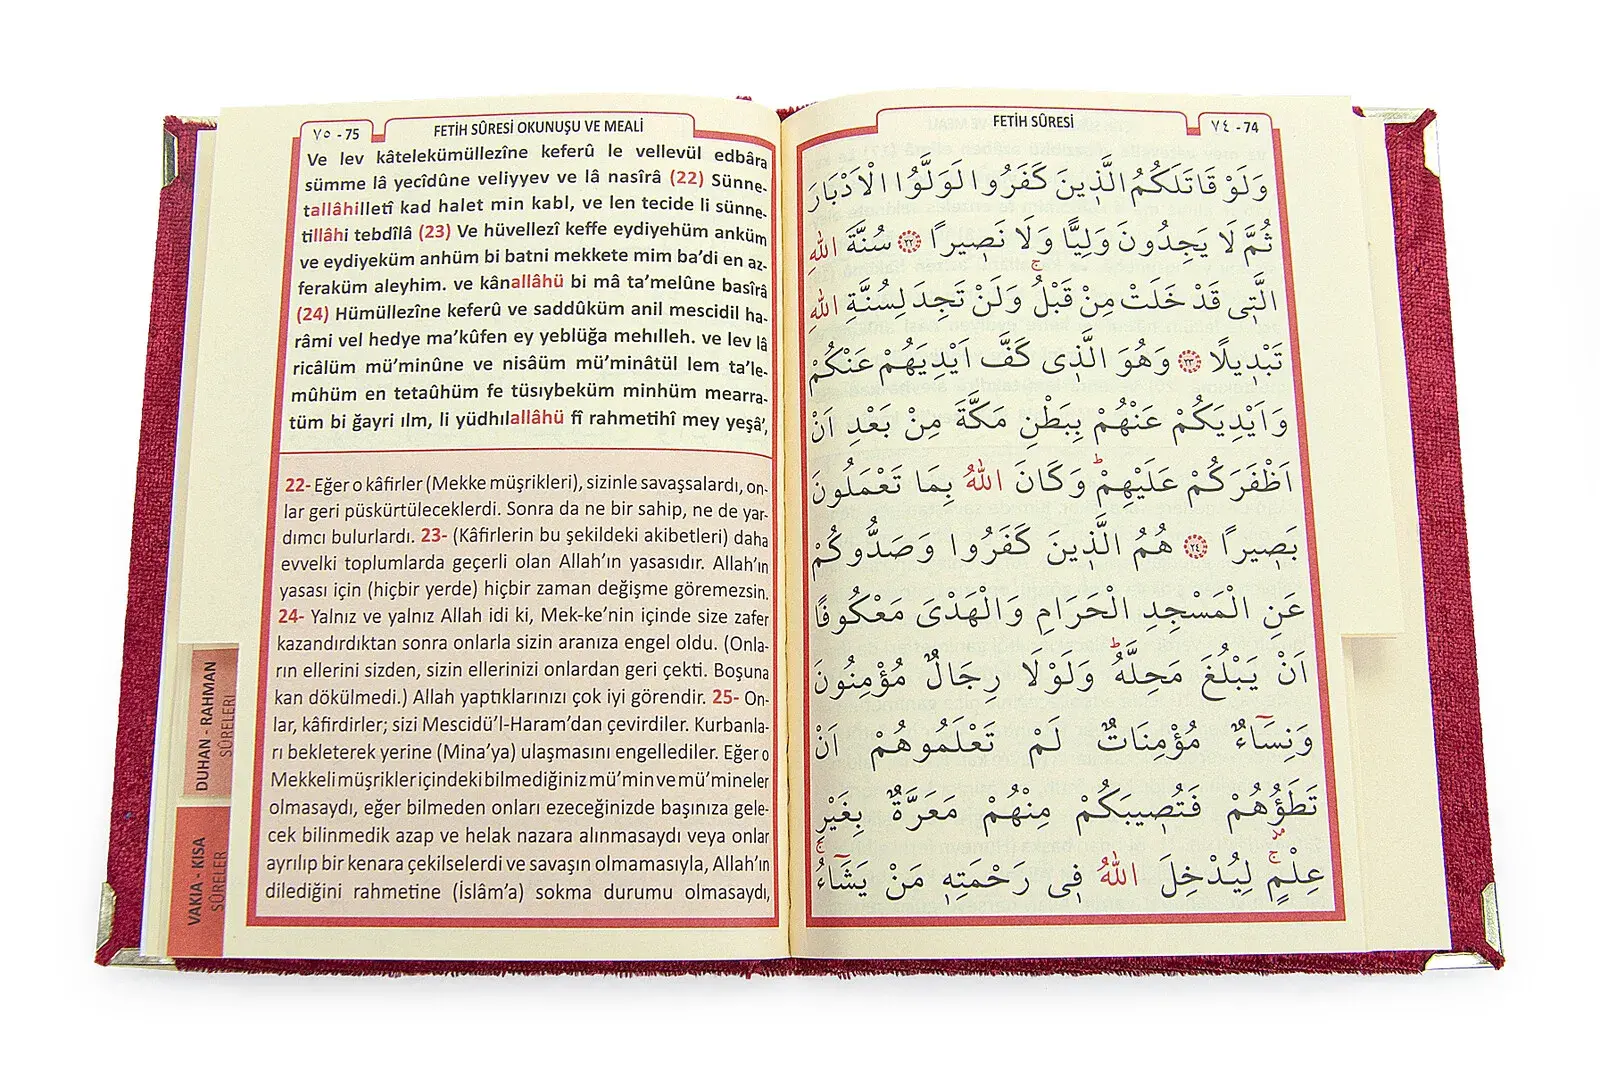 ٧٥ - 75
FETİH SÛRESİ OKUNUŞU VE MEALİ
Ve lev kâtelekümüllezîne keferû le vellevül edbâra
sümme lâ yecîdûne veliyyev ve lâ nasîrâ (22) Sünne-
tallâhilletî kad halet min kabl, ve len tecide li sünne-
tillâhi tebdîlâ (23) Ve hüvellezî keffe eydiyehüm anküm
ve eydiyeküm anhüm bi batni mekkete mim ba’di en az-
feraküm aleyhim. ve kânallâhü bi mâ ta’melûne basîrâ
(24) Hümüllezîne keferû ve saddûküm anil mescidil ha-
râmi vel hedye ma’kûfen ey yeblüğa mehılleh. ve lev lâ
ricâlüm mü’minûne ve nisâüm mü’minâtül lem ta’le-
mûhüm en tetaûhüm fe tüsıybeküm minhüm mearra-
tüm bi ğayri ılm, li yüdhılallâhü fî rahmetihî mey yeşâ’,
22- Eğer o kâfirler (Mekke müşrikleri), sizinle savaşsalardı, on-
lar geri püskürtüleceklerdi. Sonra da ne bir sahip, ne de yar-
dımcı bulurlardı. 23- (Kâfirlerin bu şekildeki akibetleri) daha
evvelki toplumlarda geçerli olan Allah’ın yasasıdır. Allah’ın
yasası için (hiçbir yerde) hiçbir zaman değişme göremezsin.
24- Yalnız ve yalnız Allah idi ki, Mek-ke’nin içinde size zafer
kazandırdıktan sonra onlarla sizin aranıza engel oldu. (Onla-
rın ellerini sizden, sizin ellerinizi onlardan geri çekti. Boşuna
kan dökülmedi.) Allah yaptıklarınızı çok iyi görendir. 25- On-
lar, kâfirdirler; sizi Mescidü’l-Haram’dan çevirdiler. Kurbanla-
rı bekleterek yerine (Mina’ya) ulaşmasını engellediler. Eğer o
Mekkeli müşrikler içindeki bilmediğiniz mü’min ve mü’mineler
olmasaydı, eğer bilmeden onları ezeceğinizde başınıza gele-
cek bilinmedik azap ve helak nazara alınmasaydı veya onlar
ayrılıp bir kenara çekilselerdi ve savaşın olmamasıyla, Allah’ın
dilediğini rahmetine (İslâm’a) sokma durumu olmasaydı,
DUHAN - RAHMAN
SÛRELERİ
VAKIA - KISA
SÛRELER
FETİH SÛRESİ
٧٤ - 74
وَلَوْ قَاتَلَكُمُ الَّذ۪ينَ كَفَرُوا لَوَلَّوُا الْاَدْبَارَ
ثُمَّ لَا يَجِدُونَ وَلِيًّا وَلَا نَص۪يرًا ﴿٢٢﴾ سُنَّةَ اللّٰهِ
الَّت۪ى قَدْ خَلَتْ مِنْ قَبْلُۚ وَلَنْ تَجِدَ لِسُنَّةِ اللّٰهِ
تَبْد۪يلًا ﴿٢٣﴾ وَهُوَ الَّذ۪ى كَفَّ اَيْدِيَهُمْ عَنْكُمْ
وَاَيْدِيَكُمْ عَنْهُمْ بِبَطْنِ مَكَّةَ مِنْ بَعْدِ اَنْ
اَظْفَرَكُمْ عَلَيْهِمْۜ وَكَانَ اللّٰهُ بِمَا تَعْمَلُونَ
بَص۪يرًا ﴿٢٤﴾ هُمُ الَّذ۪ينَ كَفَرُوا وَصَدُّوكُمْ
عَنِ الْمَسْجِدِ الْحَرَامِ وَالْهَدْىَ مَعْكُوفًا
اَنْ يَبْلُغَ مَحِلَّهُۜ وَلَوْلَا رِجَالٌ مُؤْمِنُونَ
وَنِسَٓاءٌ مُؤْمِنَاتٌ لَمْ تَعْلَمُوهُمْ اَنْ
تَطَؤُهُمْ فَتُص۪يبَكُمْ مِنْهُمْ مَعَرَّةٌ بِغَيْرِ
عِلْمٍۚ لِيُدْخِلَ اللّٰهُ ف۪ى رَحْمَتِه۪ مَنْ يَشَٓاءُۚ